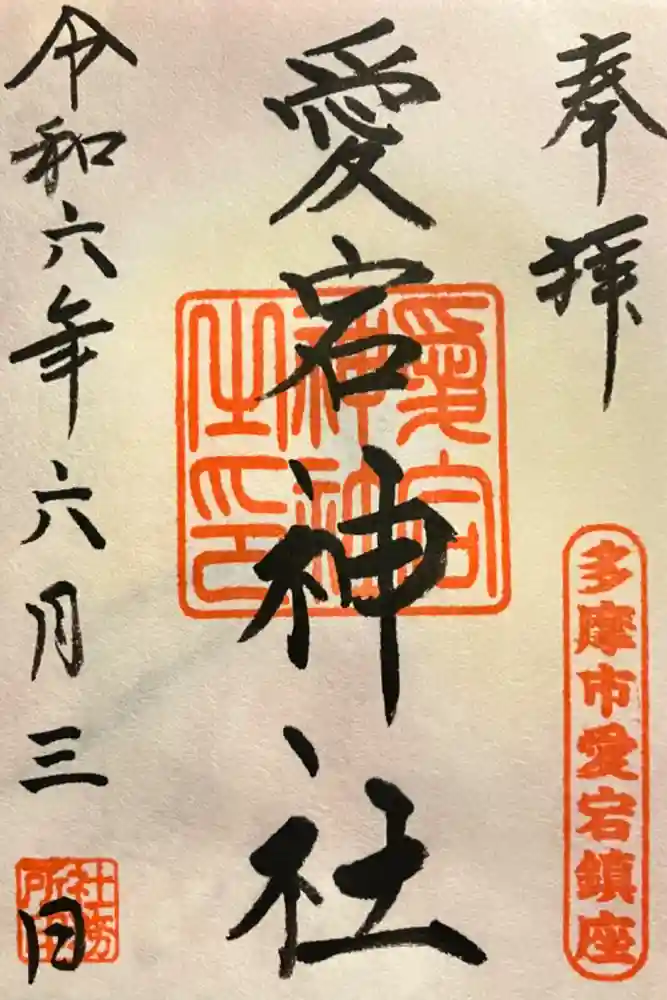 奉拝
多摩市愛宕鎮座
愛宕神社
愛宕神社之印
令和六年六月三日